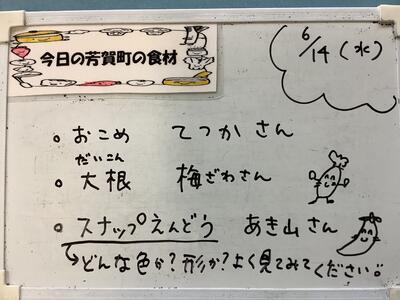 今日の芳賀町の食材
6/14(水)
。おこめ てつかさん
だいこん
。大根 梅ざわさん
。スナップえんどう あき山さん
↳どんな色か?形か?よく見てみてください。